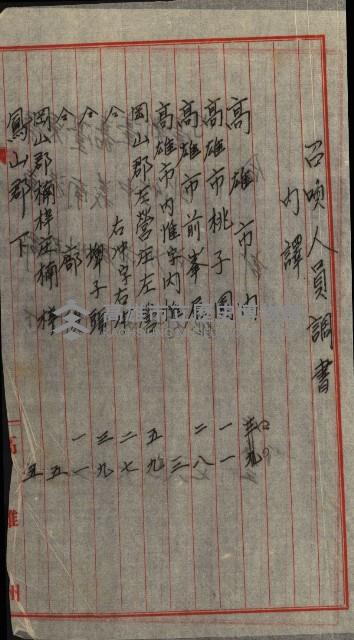 召喚人員調書
內譯
高雄市內
高雄市桃子園
高雄市前峯尾
高雄市內惟字內惟
岡山郡左營庄左營
仝 右冲字右冲
仝 埤子頭
仝 廍
岡山郡楠梓庄楠梓
鳳山郡下
一一
二八
三
五九
二七
三九
一一
五
五
高雄州
高雄市立歷史博物館